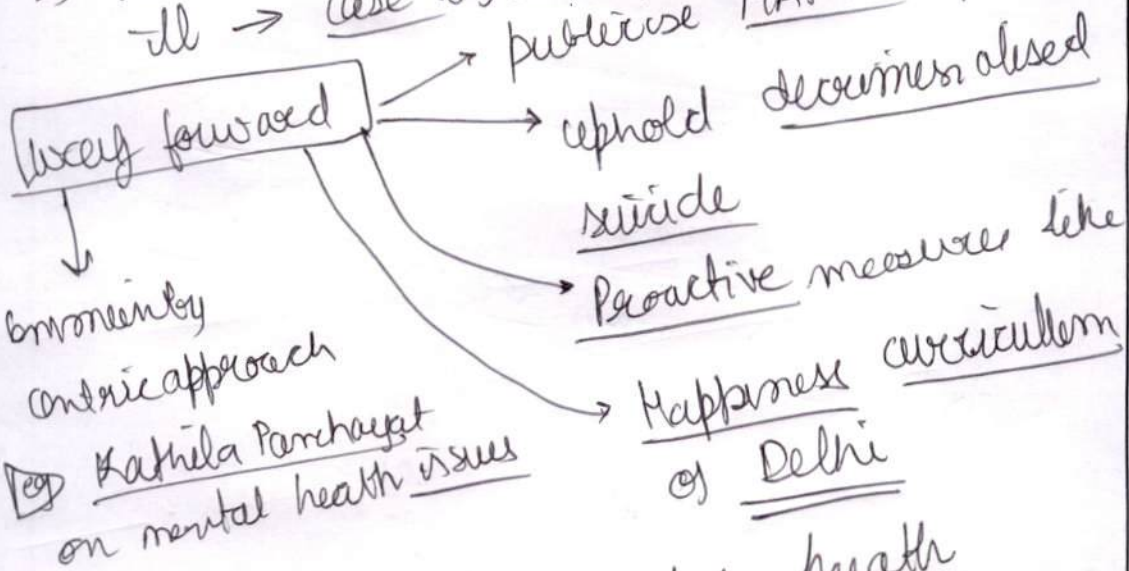 ill → case
publicise
way forward
uphold decriminalised
suicide
Proactive measures like
Happiness curriculum
of Delhi
Community
centric approach
eg Kathila Panchayat
on mental health issues
health